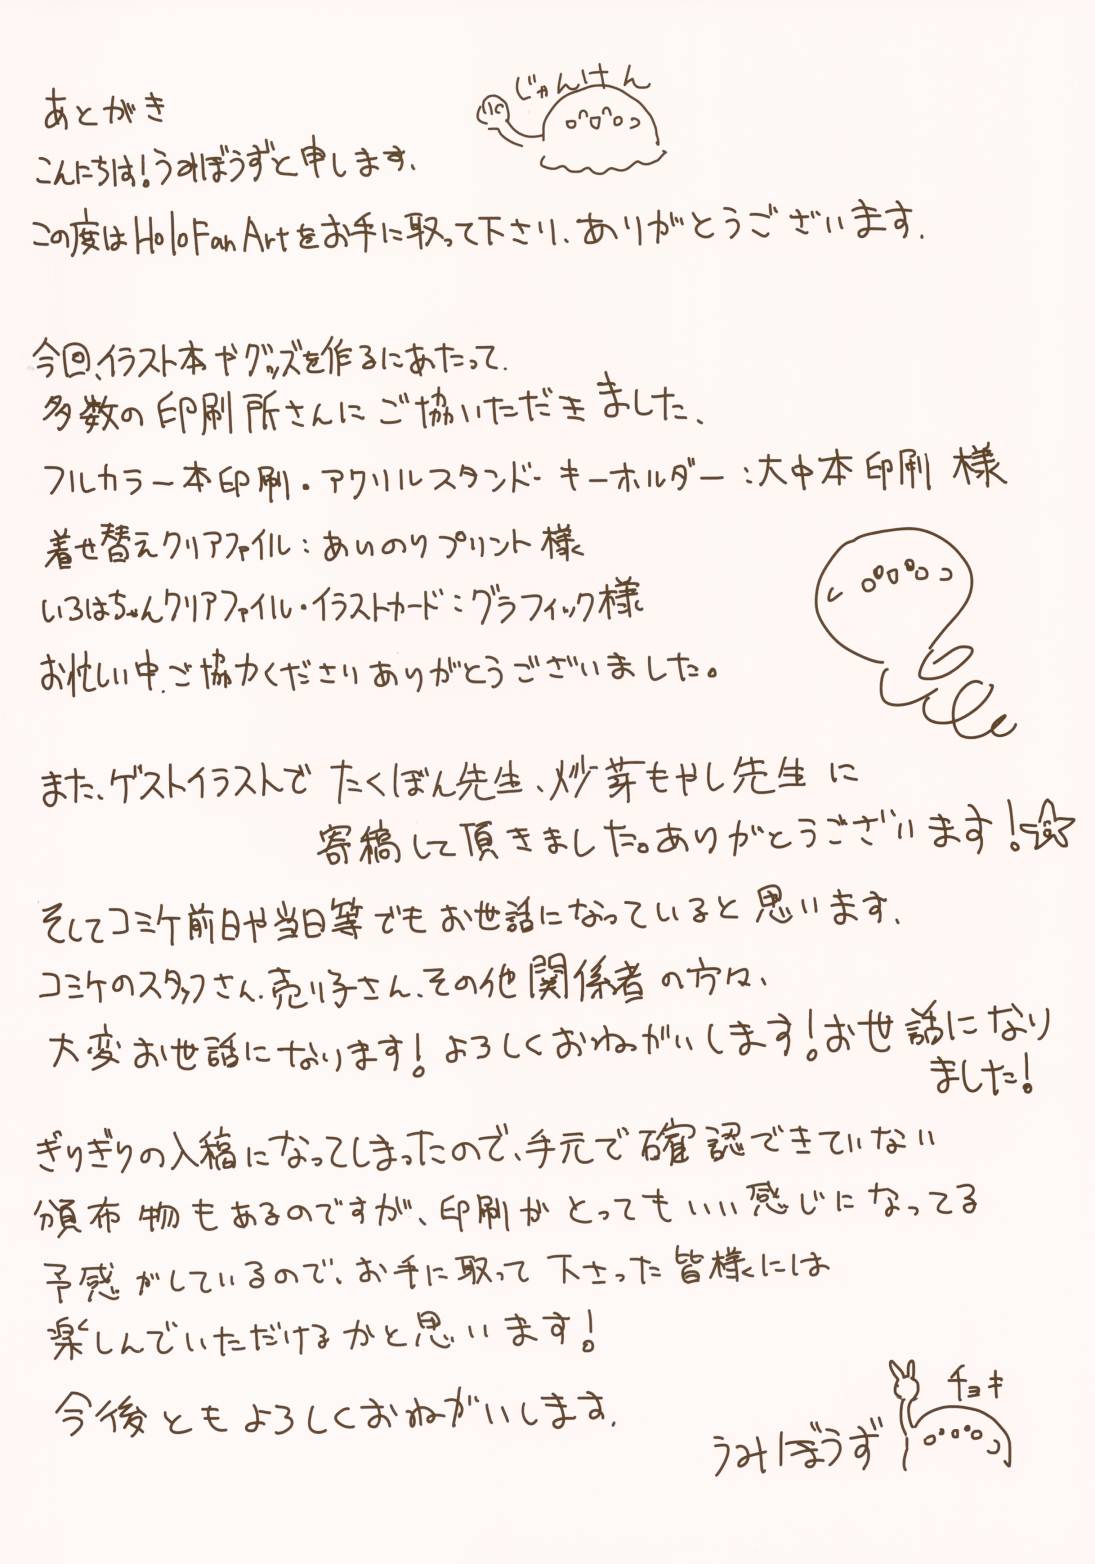 じゃんけん
あとがき
こんにちは!うみぼうずと申します.
この度はHoloFanArtをお手に取って下さり、ありがとうございます.
今回、イラスト本やグッズを作るにあたって.
多数の印刷所さんにご協いただきました、
フルカラー本印刷・アクリルスタンド・キーホルダー:大中本印刷 様
着せ替えクリアファイル:あいのりプリント様
いろはちゃんクリアファイル・イラストカード:グラフィック様
お忙しい中.ご協力くださりありがとうございました。
また、ゲストイラストで たくぼん先生、炒芽もやし先生 に
寄稿して頂きました。ありがとうございます!
そしてコミケ前日や当日等でもお世話になっていると思います.
コミケのスタッフさん.売り子さん、その他関係者の方々、
大変お世話になります!よろしくおねがいします!お世話になり
ました!
ぎりぎりの入稿になってしまったので、手元で確認できていない
頒布物もあるのですが、印刷がとってもいい感じになってる
予感がしているので、お手に取って下さった皆様には
楽しんでいただけるかと思います!
今後ともよろしくおねがいします.
チョキ
うみぼうず